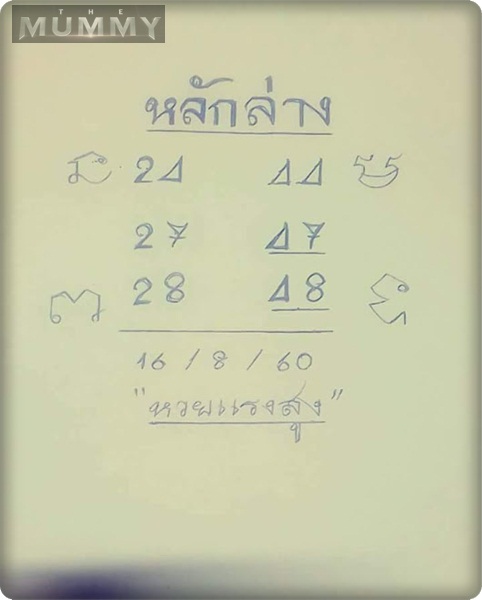 THE
MUMMY
หลักล่าง
24 44
27 47
28 48
16 / 8 / 60
"หวยแรงสูง"